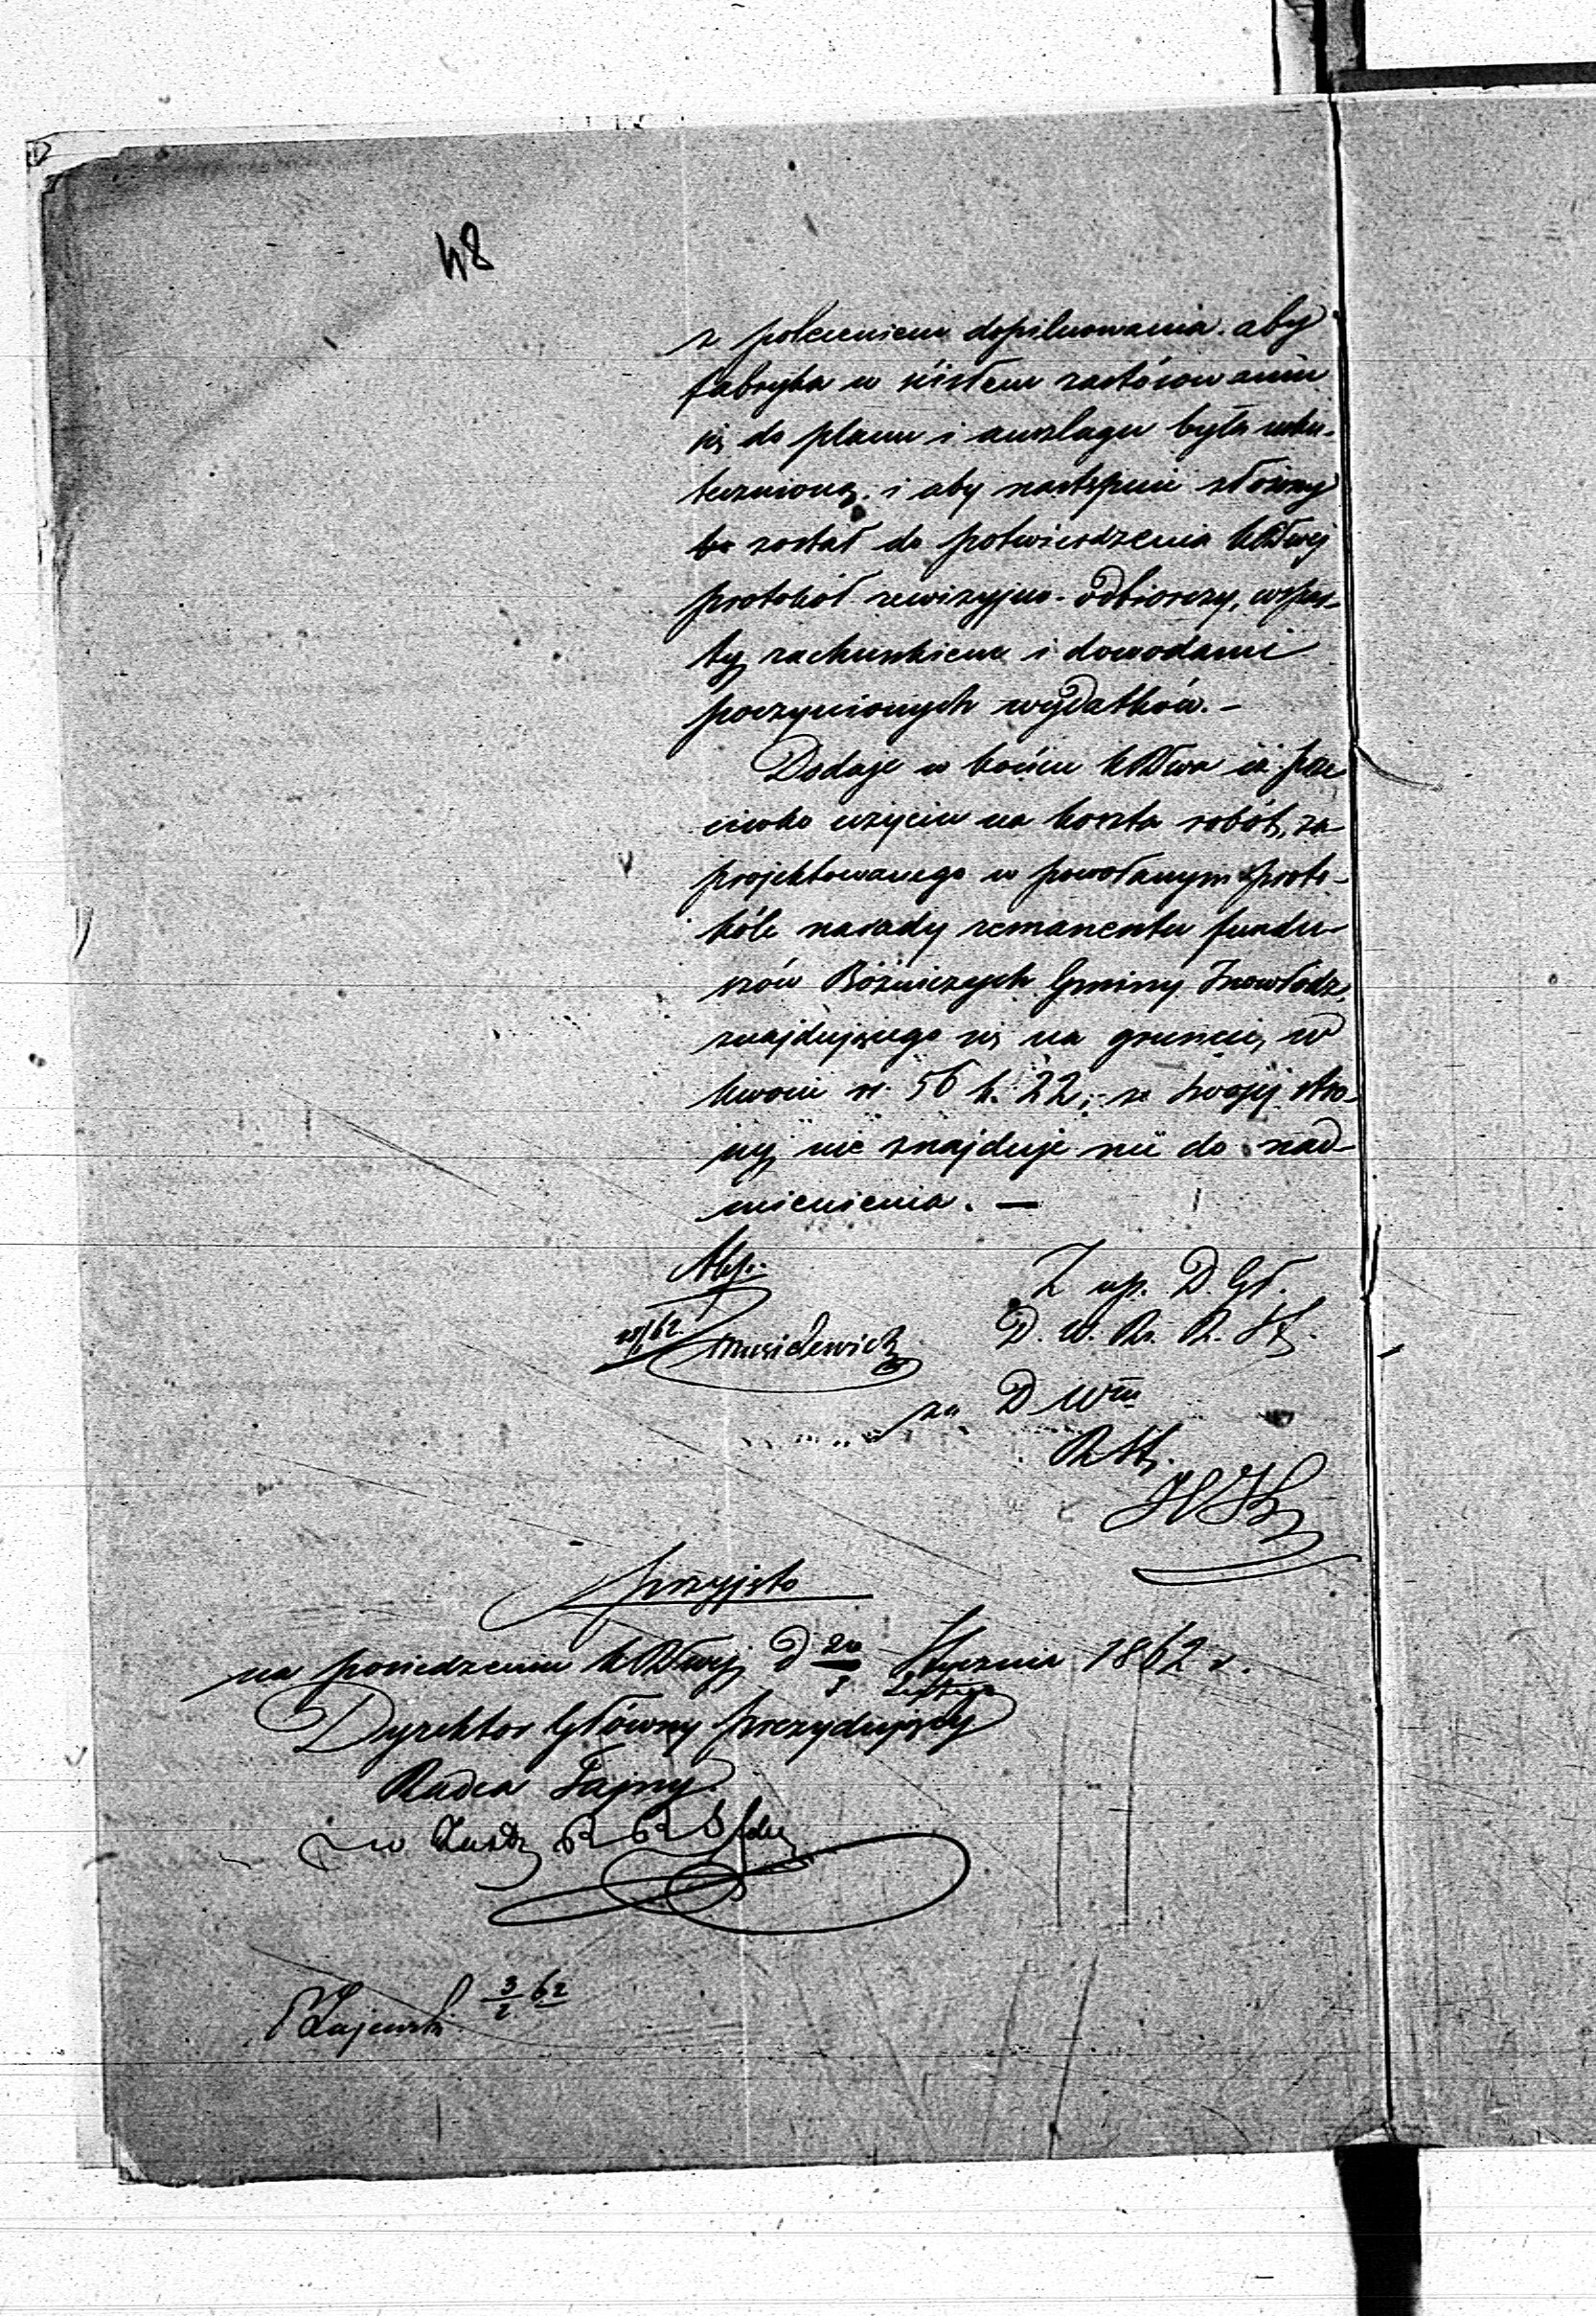 48
z poleceniem dopilnowania aby
fabryka w ścisłem zastósowaniu
się do planu i anszlagu była usku-
tecznioną, i aby następnie złożony
został do potwierdzenia KRządowej
protokół rewizyjno-odbiorczy, wspar-
ty rachunkiem i dowodami
poczynionych wydatków. –
Dodaje w końcu KRządowa iż prze
ciwko użyciu na koszta robót, za
projektowanego w powołanym proto-
kóle narady remanentu fundu-
szów Bóżniczych Gminy Inowłódz,
znajdującego się na gruncie, w
kwocie rs. 56 k. 22, ze swojej stro-
ny, nie znajduje nic do nad-
mienienia. —
Z up. D. Gł.
D. W. Rz. R. St.
/62.
za D Wału
R. St.
przyjęto
na posiedzeniu KRządowej d 20 Stycznia 1862 r.
Lutego
Dyrektor Główny Prezydujący
Radca Tajny.
Zajewski 3/2 62